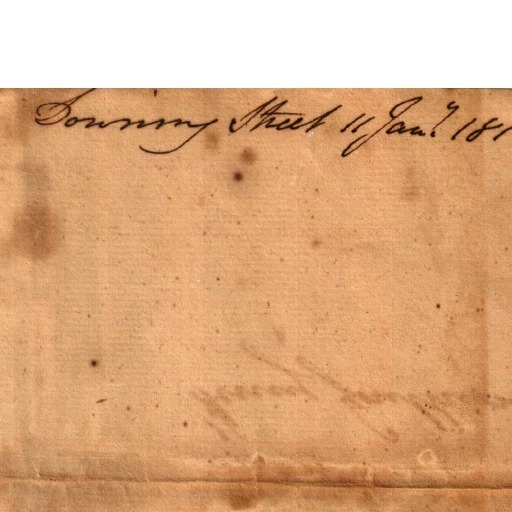 Downing Street 11 Jany. 181